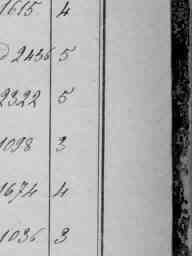 1615 4
2436 5
2322 5
1098 3
1674 4
1036 3